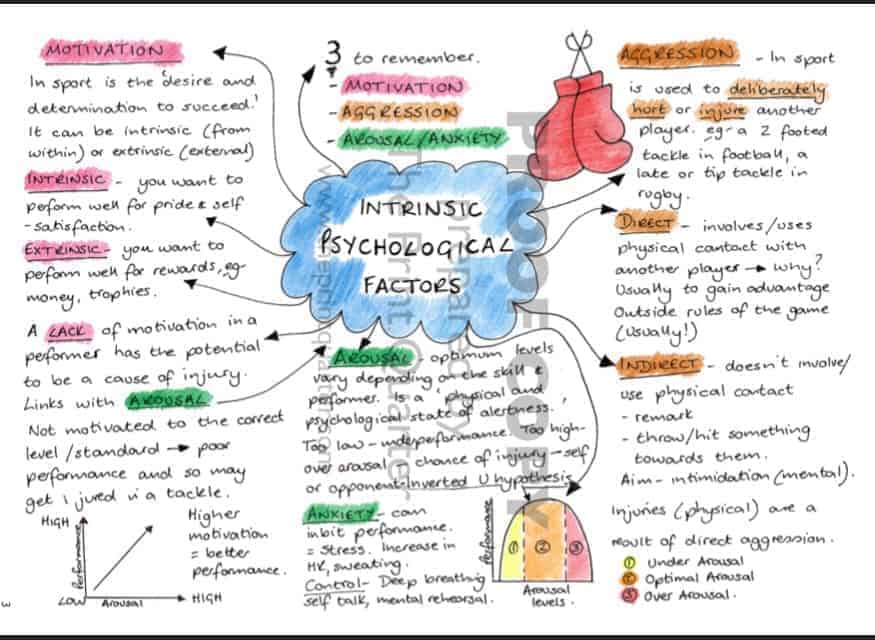 MOTIVATION
In sport is the 'desire and
determination to succeed.'
It can be intrinsic (from
within) or extrinsic (external)
INTRINSIC - you want to
perform well for pride & self
-satisfaction.
EXTRINSIC - you want to
perform well for rewards, eg
money, trophies.
A LACK of motivation in a
performer has the potential
to be a cause of injury.
Links with AROUSAL
Not motivated to the correct
level/standard → poor
performance and so may
get injured via a tackle.
HIGH
Performance
LOW
Arousal
HIGH
Higher
motivation
= better
performance.
3 to remember.
- MOTIVATION
- AGGRESSION
- AROUSAL/ANXIETY
INTRINSIC
PSYCHOLOGICAL
FACTORS
AROUSAL - optimum levels
vary depending on the skill &
performer. Is a 'physical and
psychological state of alertness.'
Too low - underperformance. Too high-
over arousal, chance of injury - self
or opponent. Inverted U hypothesis
ANXIETY - can
inbit performance.
= Stress. Increase in
HR, sweating.
Control - Deep breathing
self talk, mental rehearsal.
Performance
① ② ③
Arousal
levels.
AGGRESSION - In sport
is used to deliberately
hurt or injure another
player. eg- a 2 footed
tackle in football, a
late or tip tackle in
rugby.
DIRECT - involves/uses
physical contact with
another player → Why?
Usually to gain advantage
Outside rules of the game
(usually!)
INDIRECT - doesn't involve/
use physical contact
- remark
- throw/hit something
towards them.
Aim - intimidation (mental).
Injuries (physical) are a
result of direct aggression.
① Under Arousal
② Optimal Arousal
③ Over Arousal.
PROOF COPY
Prepared by
The Print Quarter
w